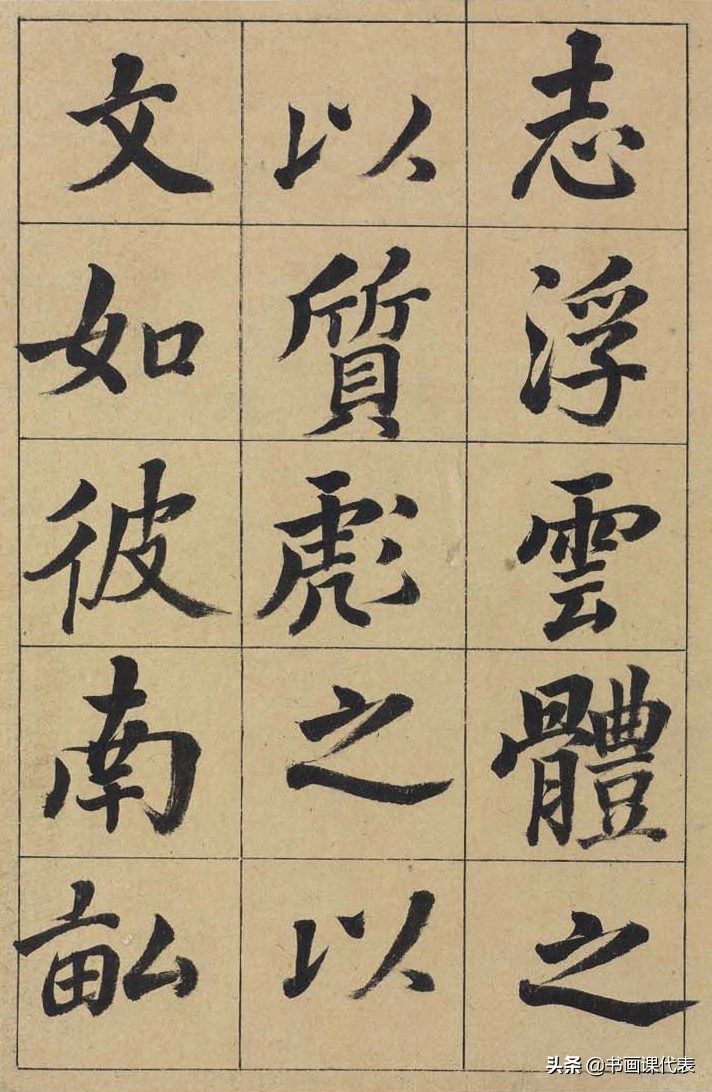 志浮雲體之
以質彪之以
文如彼南畝
头条 @书画课代表